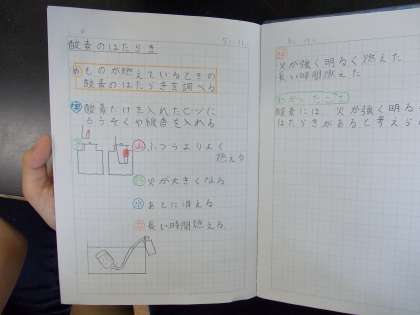 酸素のはたらき
5. 11.
め ものが燃えているときの
酸素のはたらきを調べる
酸素だけを入れたビンに
ろうそくや線香を入れる
ふつうよりよく
燃える
火が大きくなる
あとに消える
長い時間燃える
火が強く明るく燃えた
長い時間燃えた
酸素には、火が強く明る
はたらきがあると考えら